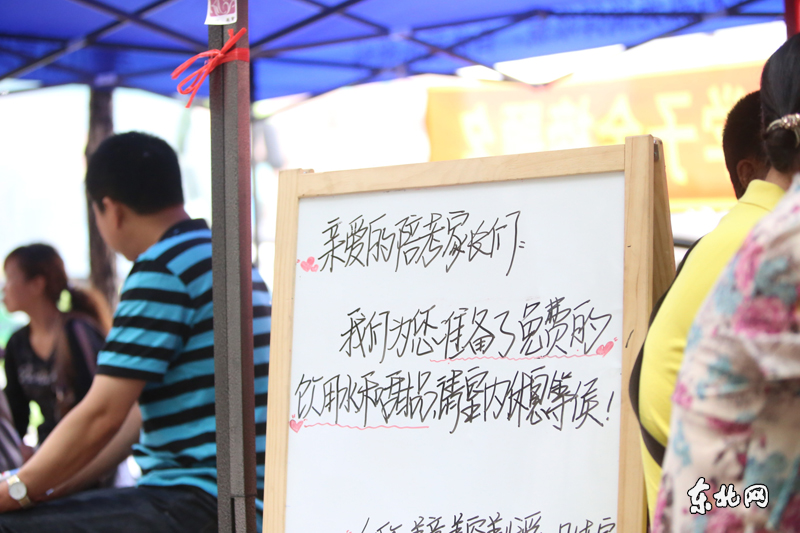 亲爱的陪考家长们：
我们为您准备了免费的
饮用水和甜品，请室内休憩等候！
东北网